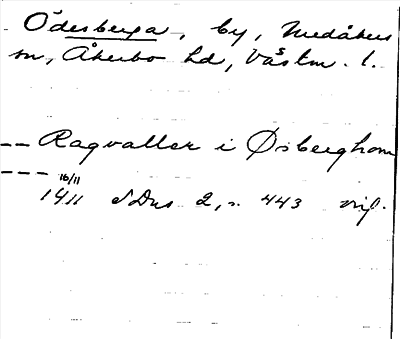 Ödesberga, by, Medåkers
sn, Åkerbo hd, Västm. l.
-- Ragvaller i Øsberghom
---
16/11
1411 SDns 2, s. 443 orig.